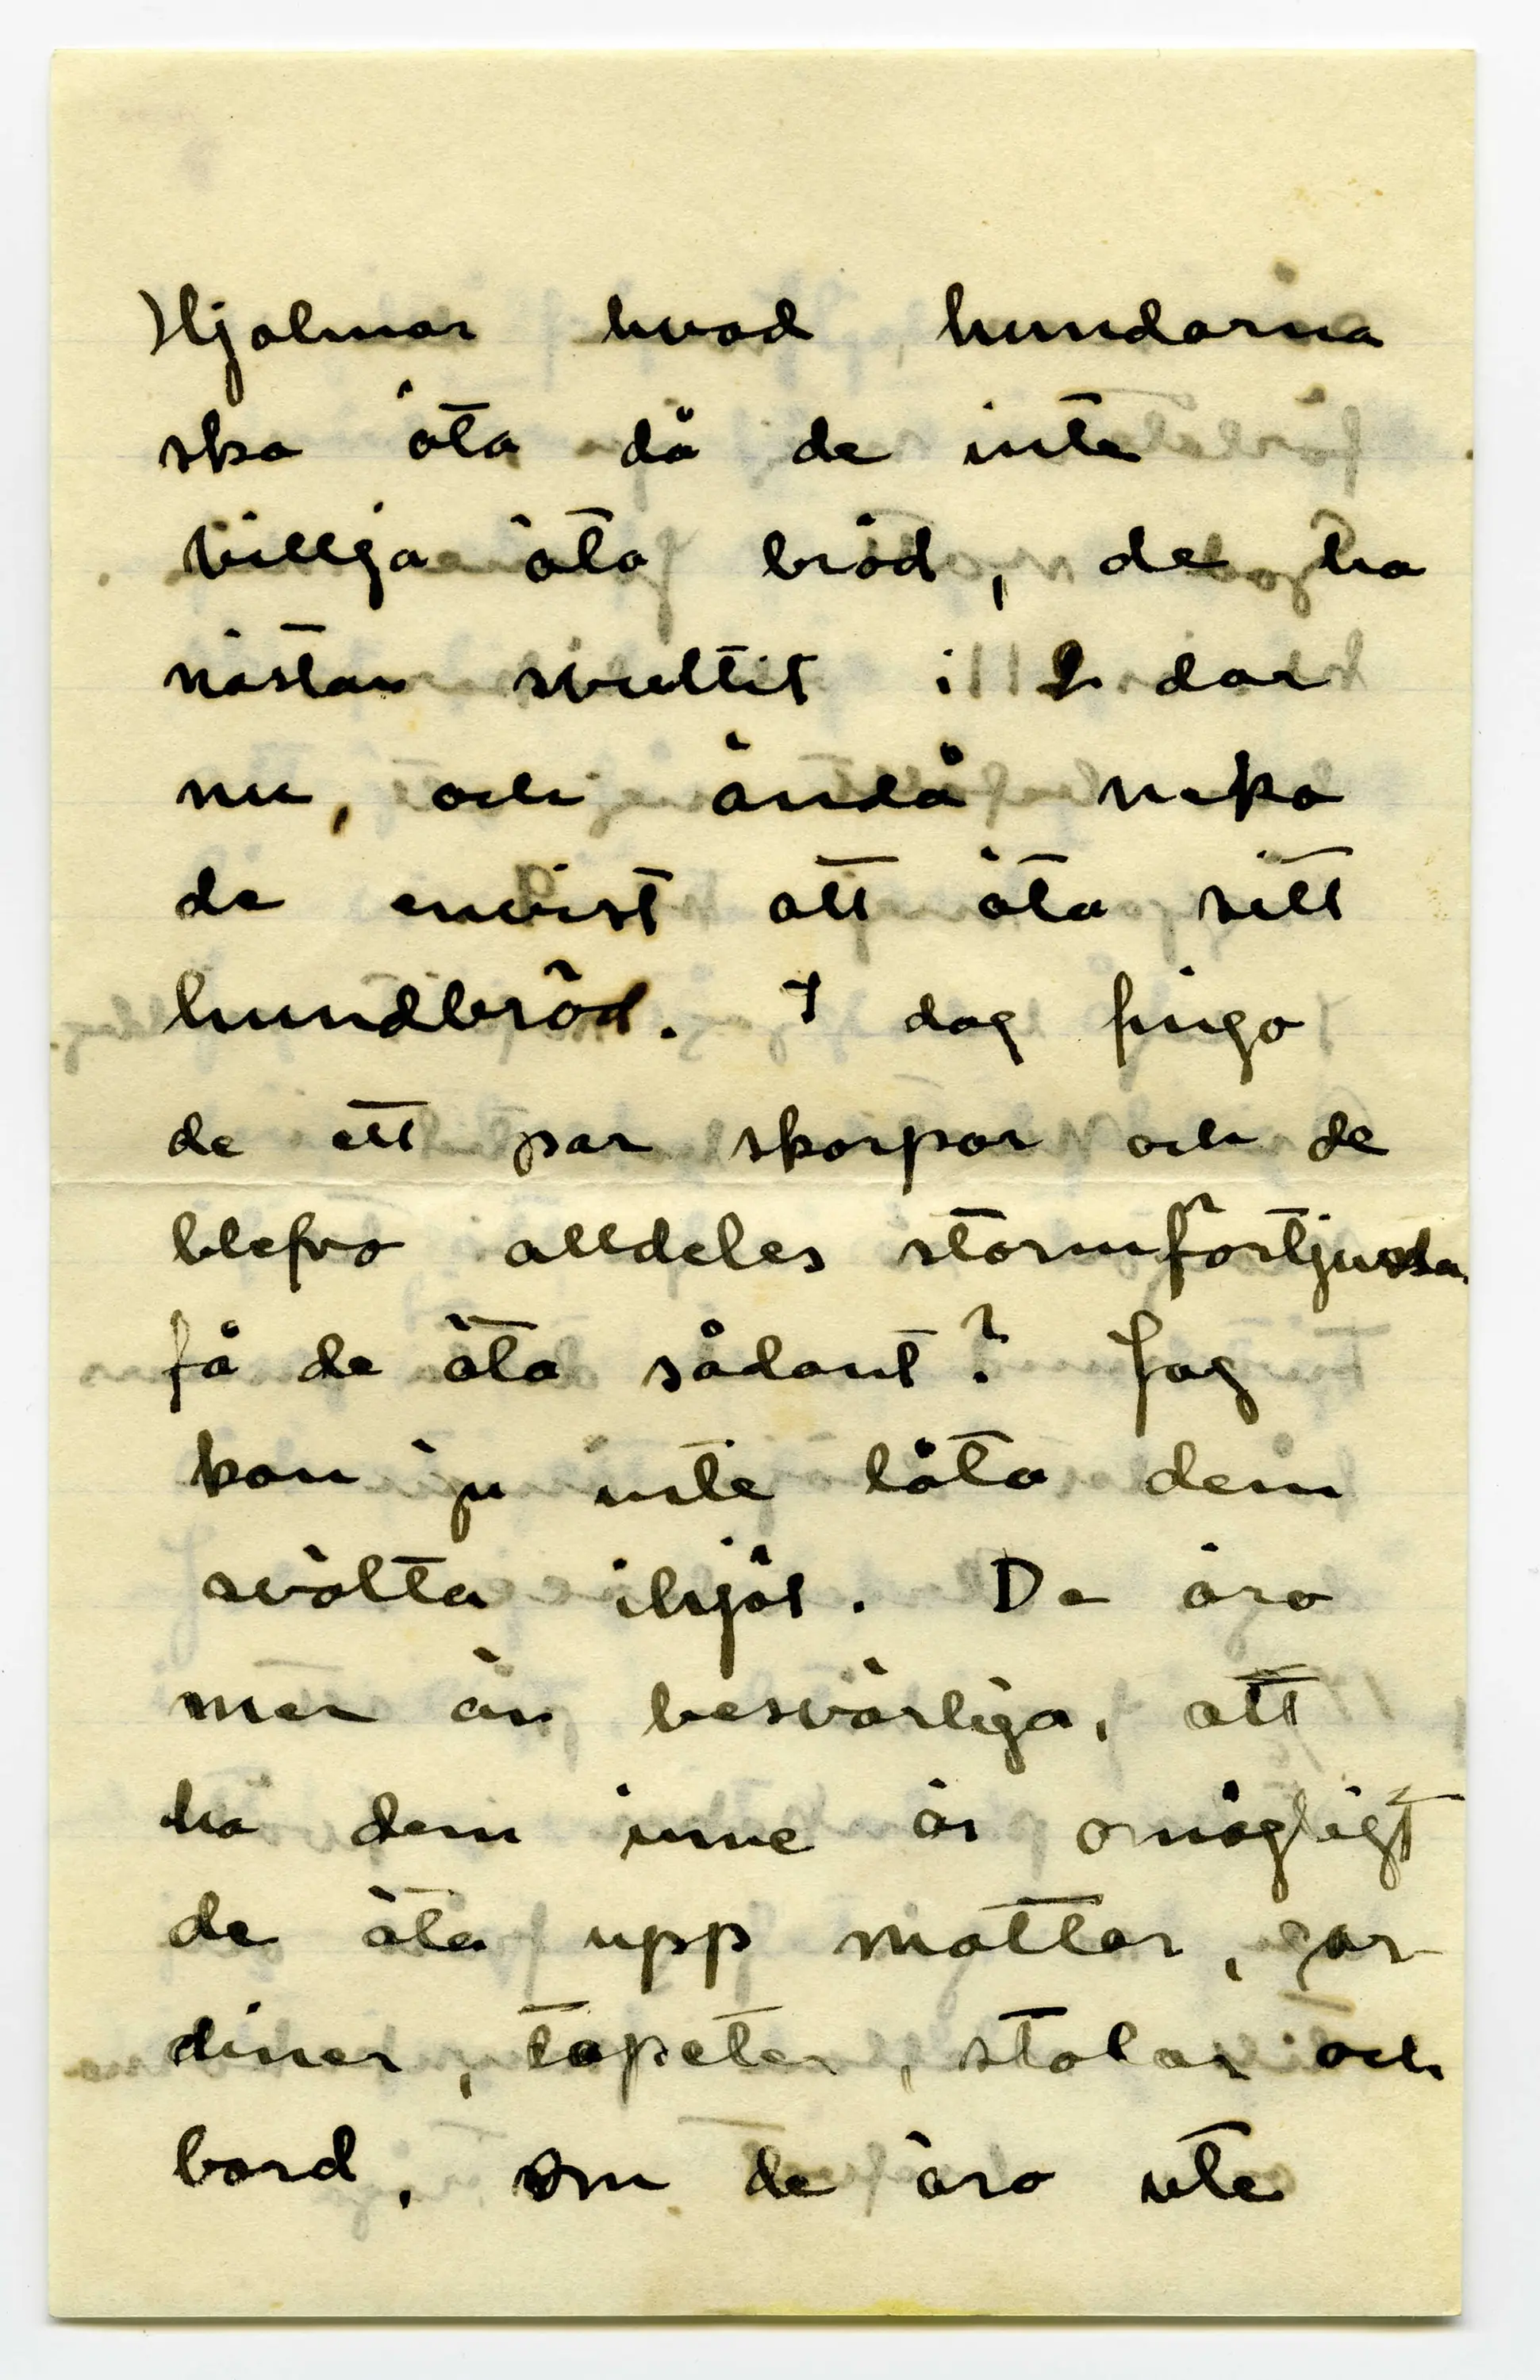 Hjalmar hvad hundarna
ska äta då de inte
villja äta bröd, de ha
nästan svultit i 2 dar
nu, och ändå neka
de envist att äta sitt
hundbröd. I dag fingo
de ett par skorpor och de
blefvo alldeles stormförtjusta.
få de äta sådant? Jag
kan ju inte låta dem
svälta ihjäl. De äro
mer än besvärliga, att
ha dem inne är omögligt
de äta upp mattor, gar-
diner, tapeter, stolar och
bord, om de äro ute